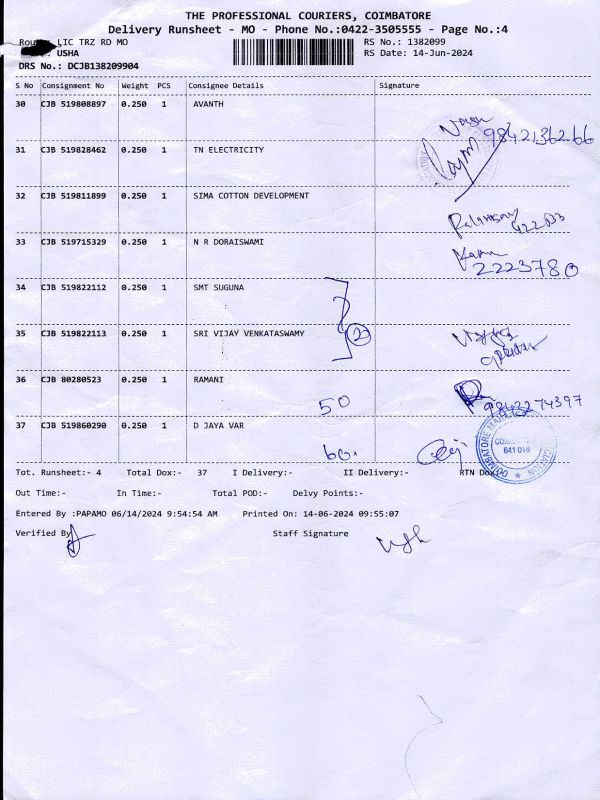 THE PROFESSIONAL COURIERS, COIMBATORE
Delivery Runsheet - MO - Phone No.:0422-3505555 - Page No.:4
LIC TRZ RD MO
RS No.: 1382099
USHA
RS Date: 14-Jun-2024
DRS No.: DCJB138209904
S No Consignment No Weight PCS Consignee Details Signature
30 CJB 519808897 0.250 1 AVANTH
9842136266
31 CJB 519828462 0.250 1 TN ELECTRICITY
32 CJB 519811899 0.250 1 SIMA COTTON DEVELOPMENT
33 CJB 519715329 0.250 1 N R DORAISWAMI
2223780
34 CJB 519822112 0.250 1 SMT SUGUNA
35 CJB 519822113 0.250 1 SRI VIJAY VENKATASWAMY
2
36 CJB 80280523 0.250 1 RAMANI
50
9843274397
37 CJB 519860290 0.250 1 D JAYA VAR
60.
641 018
Tot. Runsheet:- 4 Total Dox:- 37 I Delivery:- II Delivery:- RTN Dox:-
Out Time:- In Time:- Total POD:- Delvy Points:-
Entered By :PAPAMO 06/14/2024 9:54:54 AM Printed On: 14-06-2024 09:55:07
Verified By Staff Signature